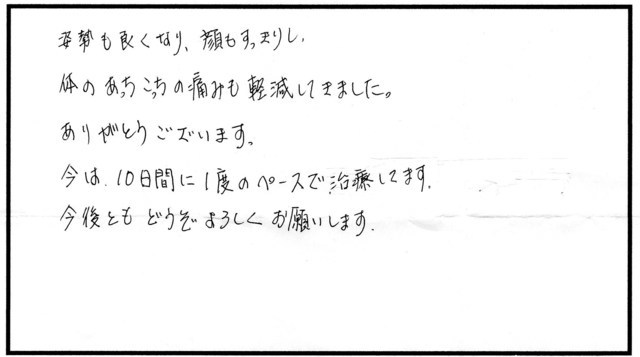 姿勢も良くなり、顔もすっきりし、
体のあっちこっちの痛みも軽減してきました。
ありがとうございます。
今は、10日間に1度のペースで治療してます。
今後とも どうぞよろしくお願いします。